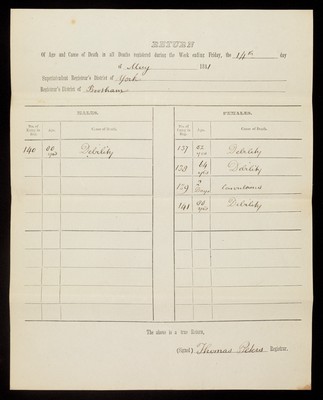 RETURN
Of Age and Cause of Death in all Deaths registered during the Week ending Friday, the 14th day
of May 1841
Superintendent Registrar's District of York
Registrar's District of
MALES. FEMALES.
No. of Entry in Reg. Age. Cause of Death. No. of Entry in Reg. Age. Cause of Death.
140 years Debility 137 years Debility
138 64 years Debility
139 3 Days Convulsions
141 years Debility
The above is a true Return,
(Signed) Thomas Registrar.